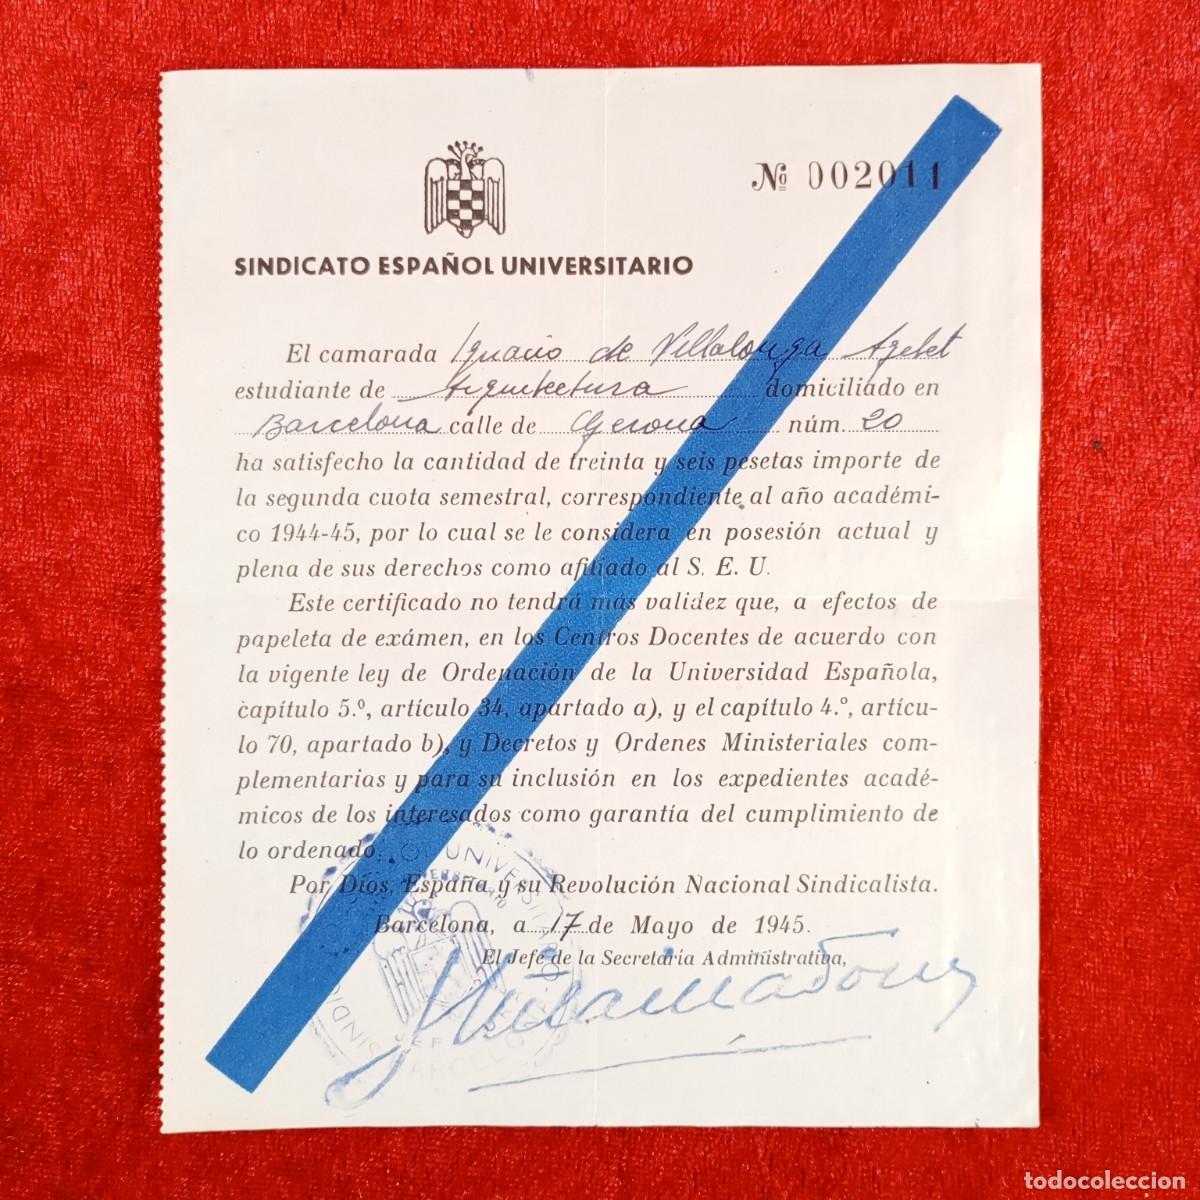 Nº 002011
SINDICATO ESPAÑOL UNIVERSITARIO
El camarada Ignacio de Villalonga Azelet
estudiante de Arquitectura domiciliado en
Barcelona calle de Gerona núm. 20
ha satisfecho la cantidad de treinta y seis pesetas importe de
la segunda cuota semestral, correspondiente al año académi-
co 1944-45, por lo cual se le considera en posesión actual y
plena de sus derechos como afiliado al S. E. U.
Este certificado no tendrá más validez que, a efectos de
papeleta de exámen, en los Centros Docentes de acuerdo con
la vigente ley de Ordenación de la Universidad Española,
capítulo 5.º, artículo 34, apartado a), y el capítulo 4.º, artícu-
lo 70, apartado b), y Decretos y Ordenes Ministeriales com-
plementarias y para su inclusión en los expedientes acadé-
micos de los interesados como garantía del cumplimiento de
lo ordenado.
Por Dios, España y su Revolución Nacional Sindicalista.
Barcelona, a 17 de Mayo de 1945.
El Jefe de la Secretaría Administrativa,
todocoleccion